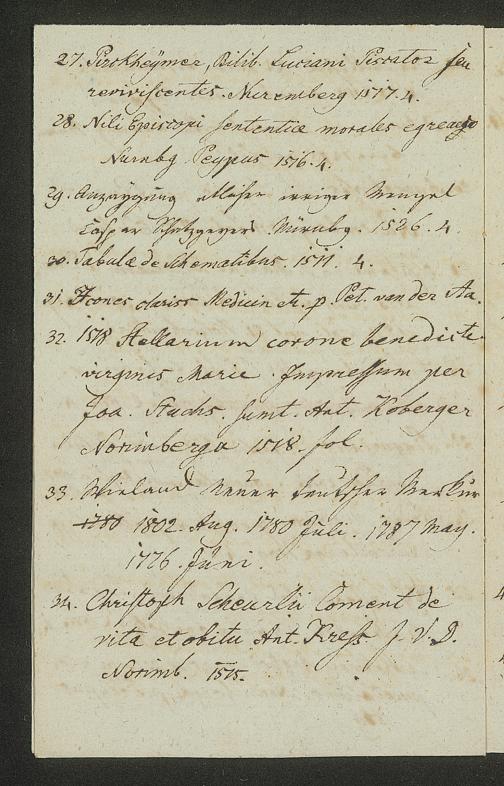 27. Pirckheÿmer, Bilib. Luciani Piscator seu
reviviscentes. Nuremberg 1517. 4.
28. Nili Episcopi sententiæ morales
Nurnbg Peypus 1516. 4.
29. Anzaygung etlicher irriger Mengel
Caspar Schatzgeyers Nürnbg. 1526. 4.
30. Tabulæ de Schematibus. 1511. 4.
31. Icones clariss Medicin et. p. Pet. van der Aa.
32. 1518 Stellarium corone benedicte
virginis Marie. Impressum per
Joa. Stuchs. sumt. Ant. Koberger
Norimberga 1518. fol.
33. Wieland neuer teutscher Merkur
1780 1802. Aug. 1780 Juli. 1787 May.
1776. Juni.
34. Christoph Scheurlii Coment de
vita et obitu Ant. Kress. J. V. D.
Norimb. 1515.